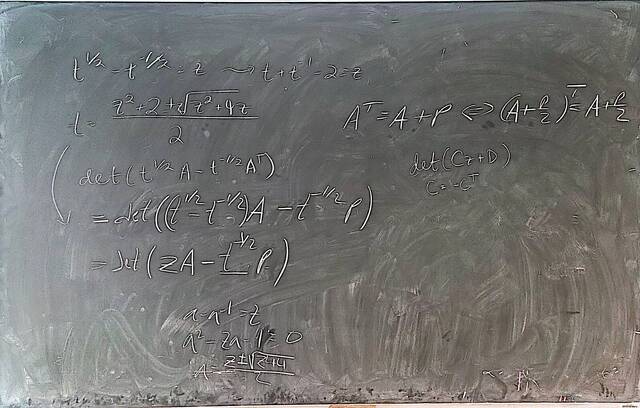 t^{1/2} - t^{-1/2} = z ⇝ t + t^{-1} - 2 = z
t = \frac{z^2 + 2 ± \sqrt{z^2 + 4z}}{2}
det(t^{1/2} A - t^{-1/2} A^T)
= det((t^{1/2} - t^{-1/2})A - t^{-1/2} P)
= det(zA - t^{-1/2} P)
a - a^{-1} = z
a^2 - za - 1 = 0
a = \frac{z ± \sqrt{z^2 + 4}}{2}
A^T = A + P ⇔ (A + \frac{P}{2})^T = A + \frac{P}{2}
det(Cz + D)
C = -C^T